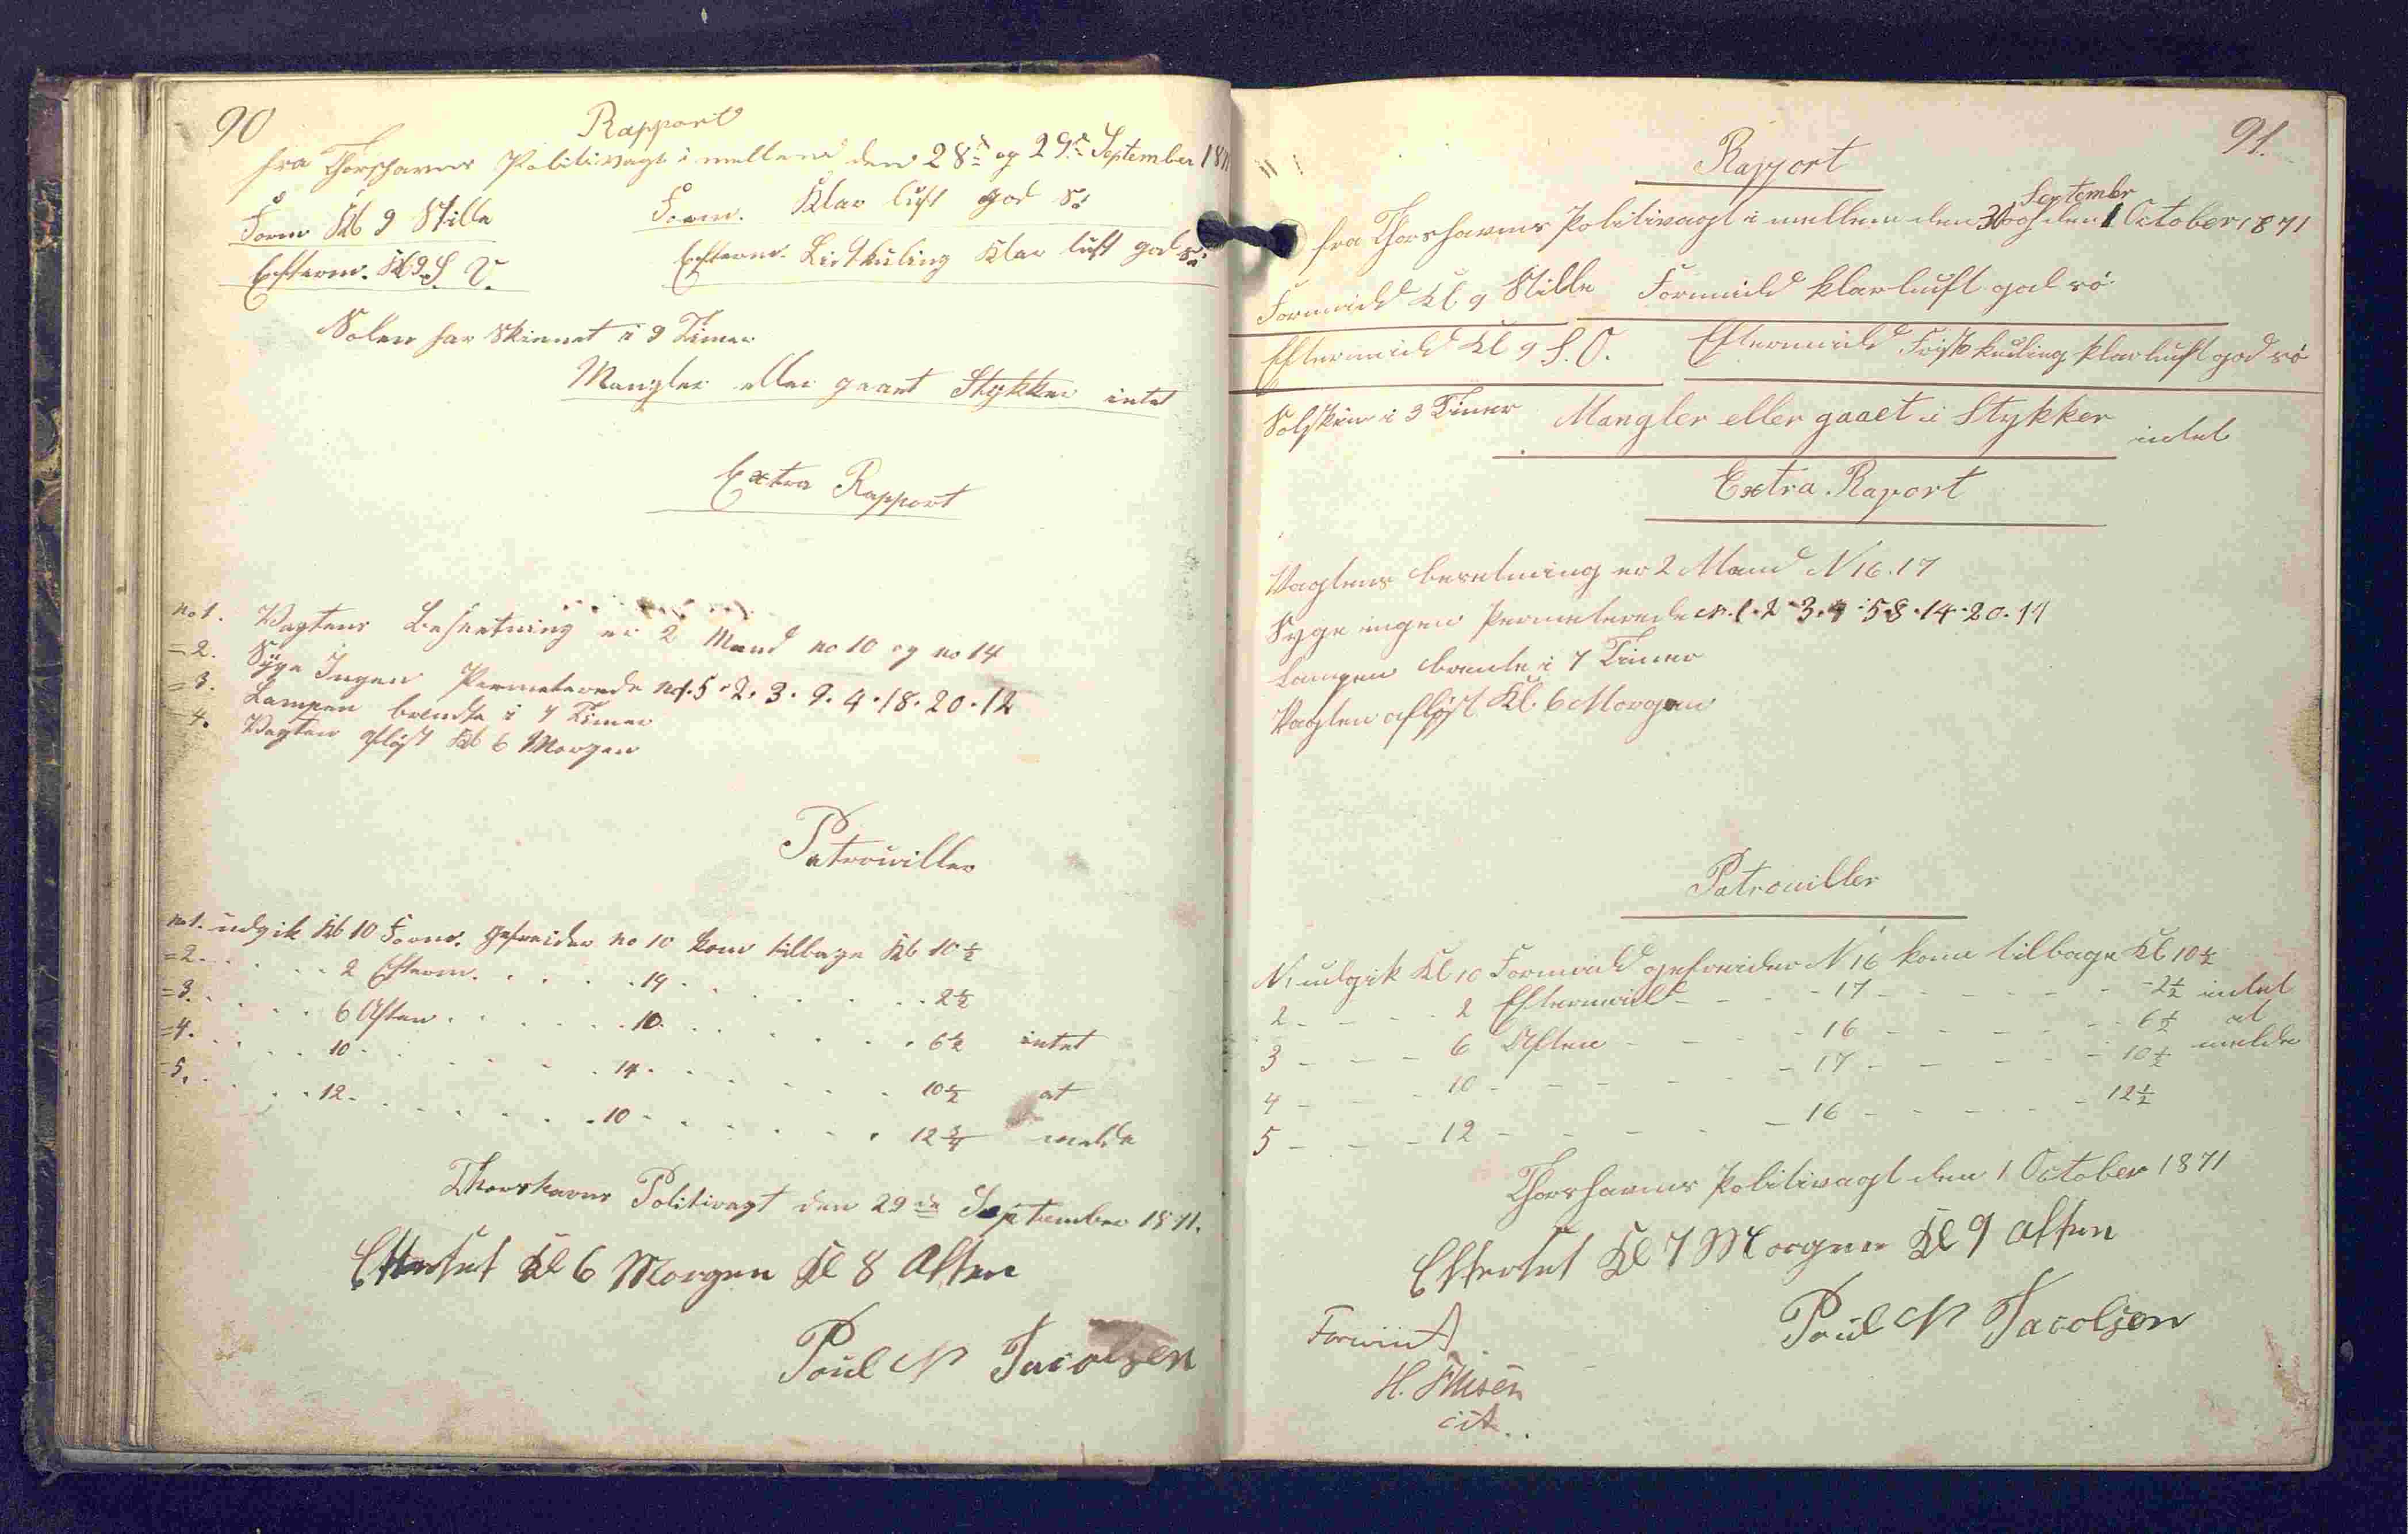 90
Rapport
fra Thorshavns Politivagt i mellem den 28de og 29de September 187
Form Kl 9 Stille Form. Klar luft god Sö
Efterm. Kl 9 S. V. Efterm. Lidt kuling Klar luft god Sö
Solen har Skinnet i 9 Timer
Mangler eller gaaet Stykker intet
Extra Rapport
no 1. Vagtens Besætning er 2 Mand no 10 og no 14
=2. Syge Ingen Permeterede no 1. 5. 2. 3. 9. 4. 18. 20. 12
=3. Lampen brendte i 7 Timer
=4. Vagten aflöst Kl 6 Morgen
Patrouiller
no 1. udgik Kl 10 Form. gefreider no 10 kom tilbage Kl 10 ½
=2. 2 Efterm. 14 2 ½
=3. 6 Aften 10 6 ½ intet
=4. 10 14 10 ½ at
=5. 12 10 12 ¾ melde
Thorshavns Politivagt den 29de September 1871.
Efterset Kl 6 Morgen Kl 8 Aften
Poul N Jacobsen
91.
Rapport
Septembr
fra Thorshavns Politivagt i mellem den 30 og den 1 October 1871
Formidd Kl 9 Stille Formidd klar luft god sö
Eftermidd Kl 9 S. O. Eftermidd Frisk kuling klar luft god sö
Solskin i 3 Timer Mangler eller gaaet i Stykker intet
Extra. Raport
Vagtens besetning er 2 Mand N 16. 17
Syge ingen Permeterede N. 1. 2. 3. 4. 5. 8. 14. 20. 11
Lampen brente i 7 Timer
Vagten aflöst Kl. 6 Morgen
Patrouiller
N 1 udgik Kl 10 Formidd gefreider N 16 kom tilbage Kl 10 ½
2 2 Eftermidd 17 2 ½ intet
3 6 Aften 16 6 ½ at
4 10 17 10 ½ melde
5 12 16 12 ½
Thorshavns Politivagt den 1 October 1871
Efterset Kl 7 Morgen Kl 9 Aften
Poul N Jacobsen
H.